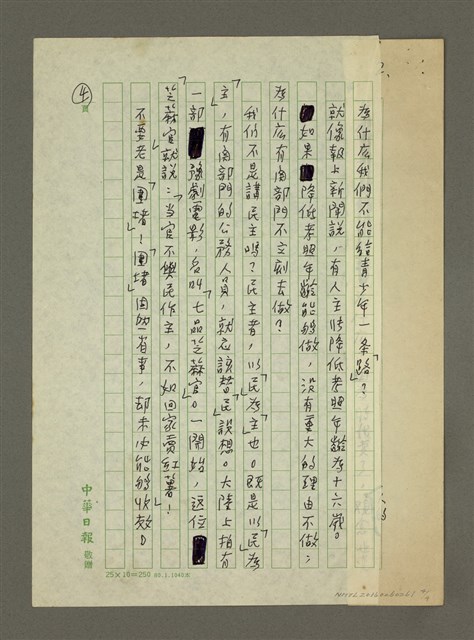 為什么我們不能給青少年一条「路」？
就像報上新聞說，有人主張降低考照年齡為十六歲。
如果降低考照年齡能够做，沒有重大的理由不做；
為什么有関部門不立刻去做？
我們不是講民主嗎？民主者，以「民為主」也。既是以「民為
主」，有関部門的公務人員，就应該替「民」設想。大陸上拍有
一部豫劇電影，名叫「七品芝蔴官」。一開始，這位
「芝蔴官」就說：当官不與民作主，不如回家賣紅薯！
不要老是「圍堵」！「圍堵」固然省事，却未必能够收效。
④頁
中華日報 敬贈
25×10=250 80.1.1940本